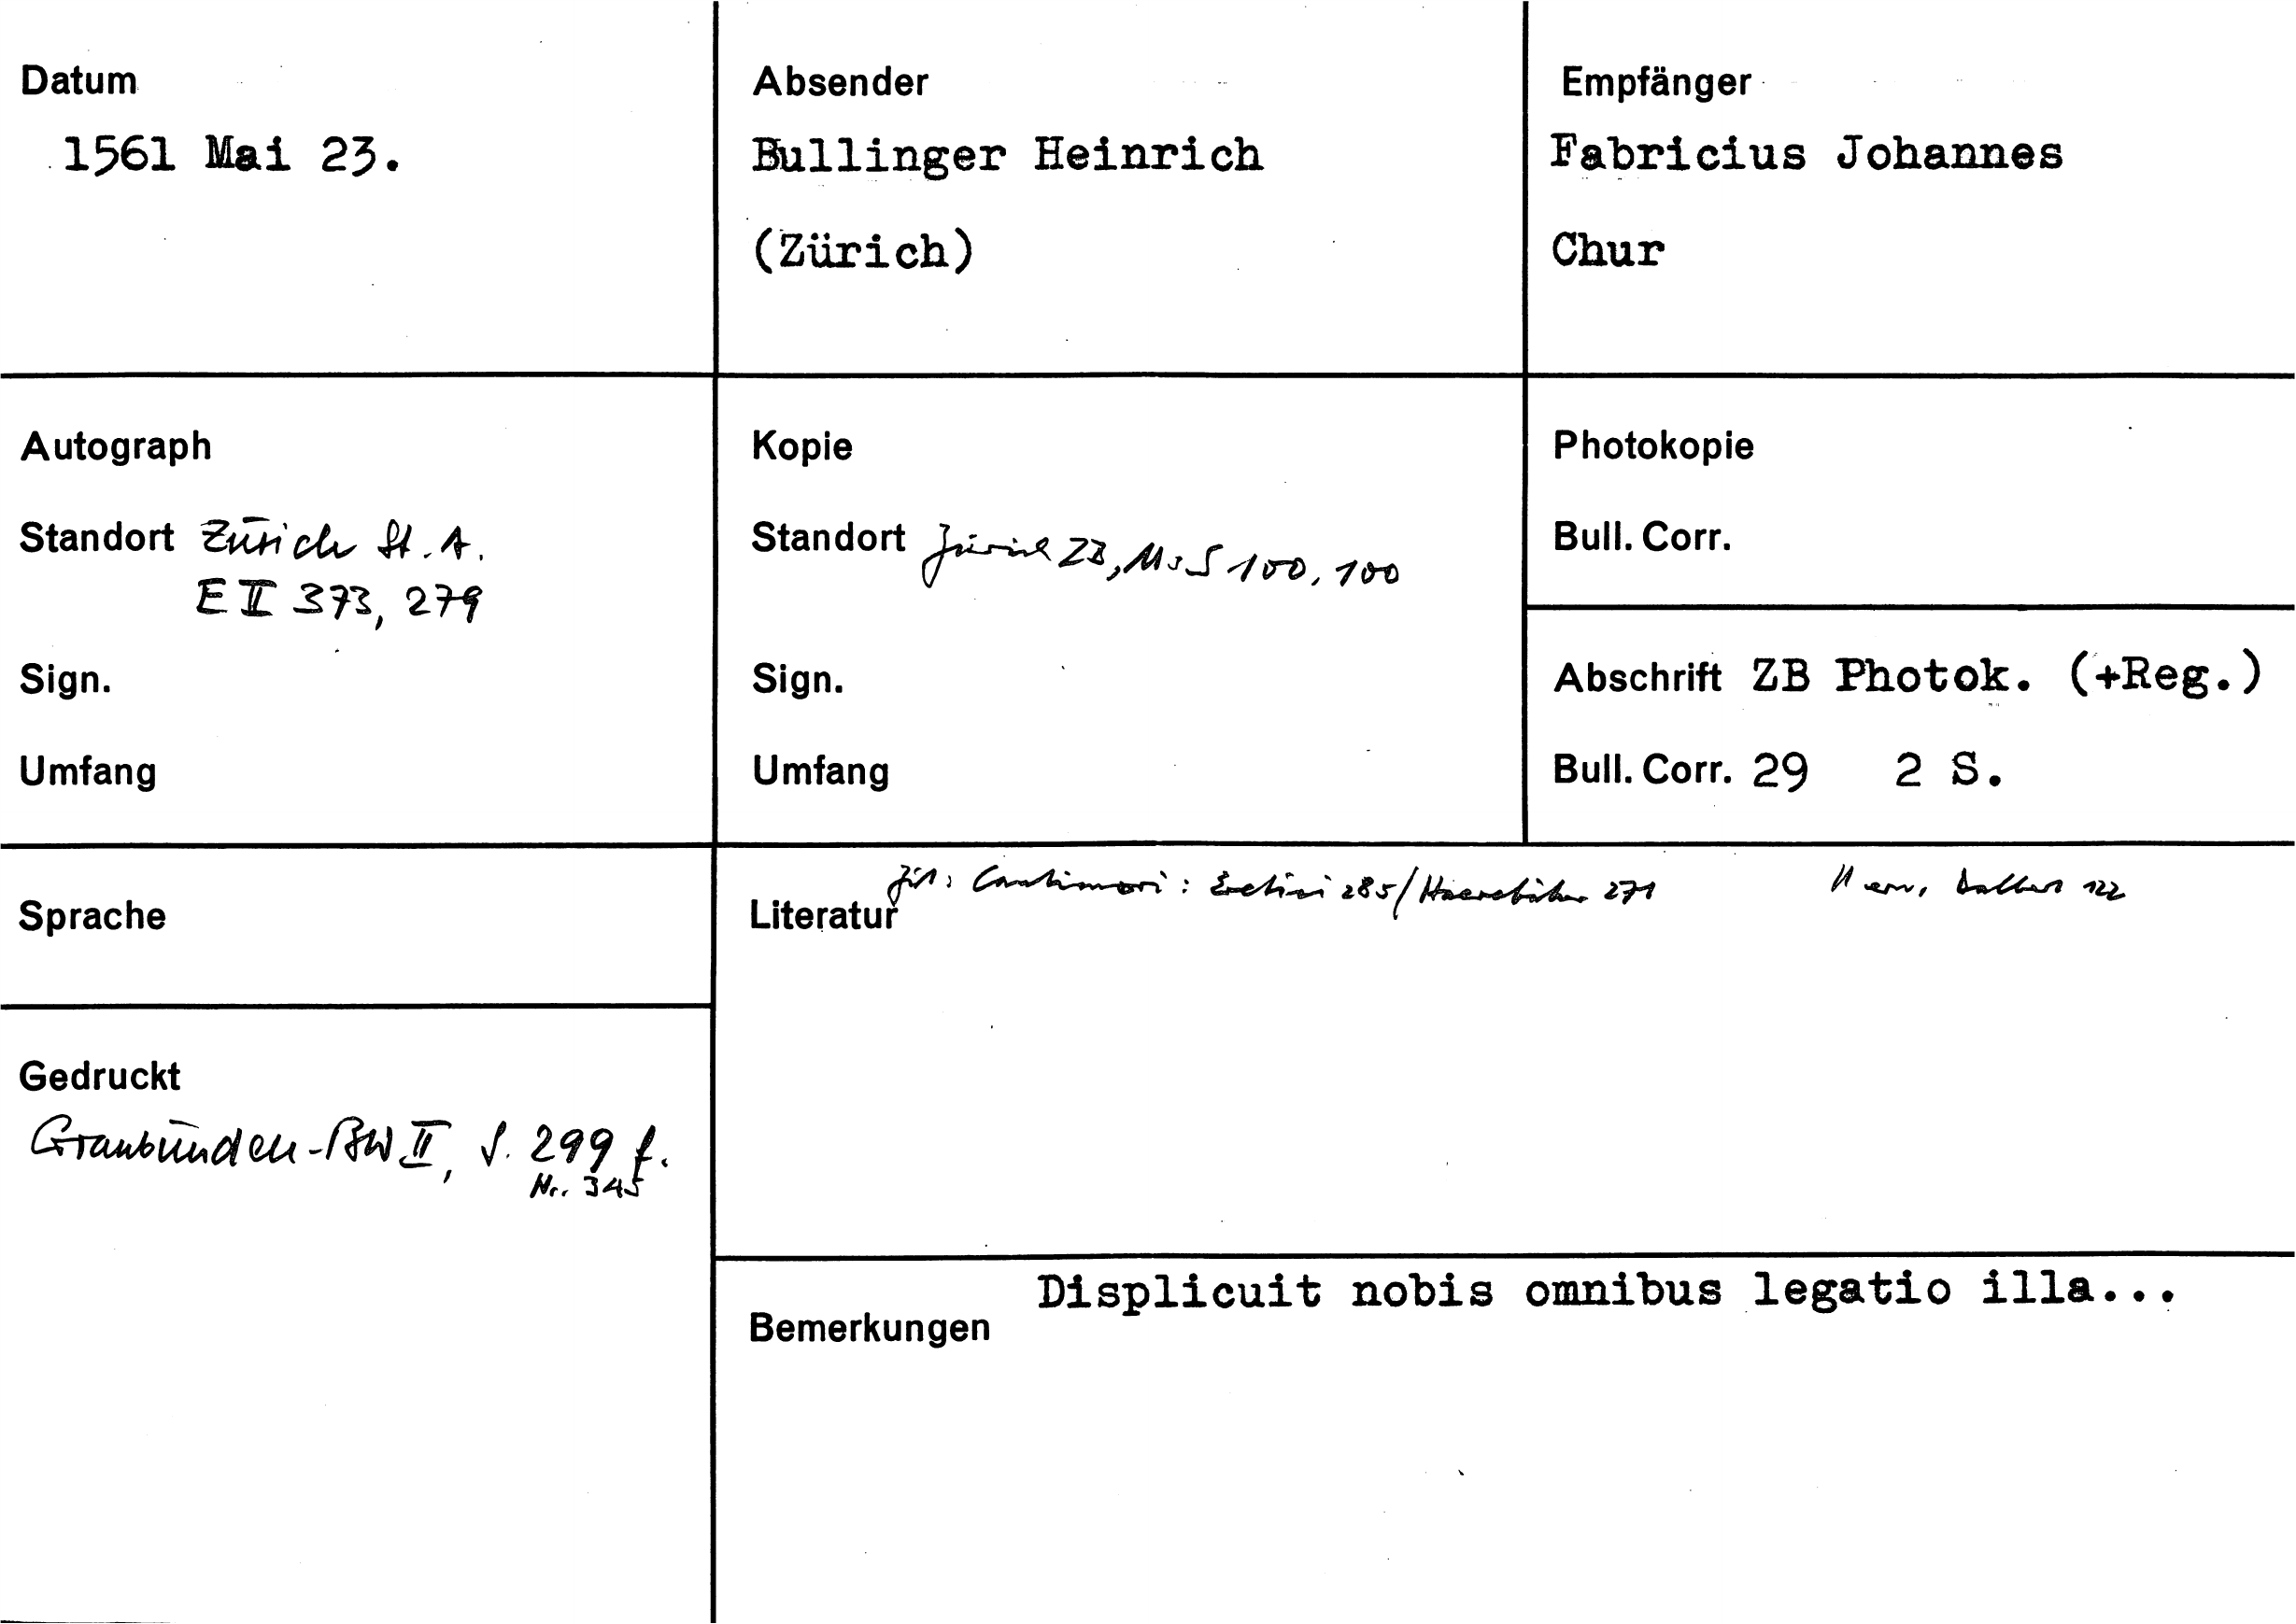 Datum
1561 Mai 23.
Absender
Bullinger Heinrich
(Zürich)
Empfänger
Fabricius Johannes
Chur
Autograph
Standort Zürich St. A.
E II 373, 279
Sign.
Umfang
Kopie
Standort Zürich ZB, Ms S 100, 100
Sign.
Umfang
Photokopie
Bull. Corr.
Abschrift ZB Photok. (+Reg.)
Bull. Corr. 29 2 S.
Sprache
Zit: Cantimori: Eretici 285/Haeretiker 271
Literatur
Gedruckt
Graubünden-BW II, S. 299 f.
Nr. 345
Displicuit nobis omnibus legatio illa...
Bemerkungen